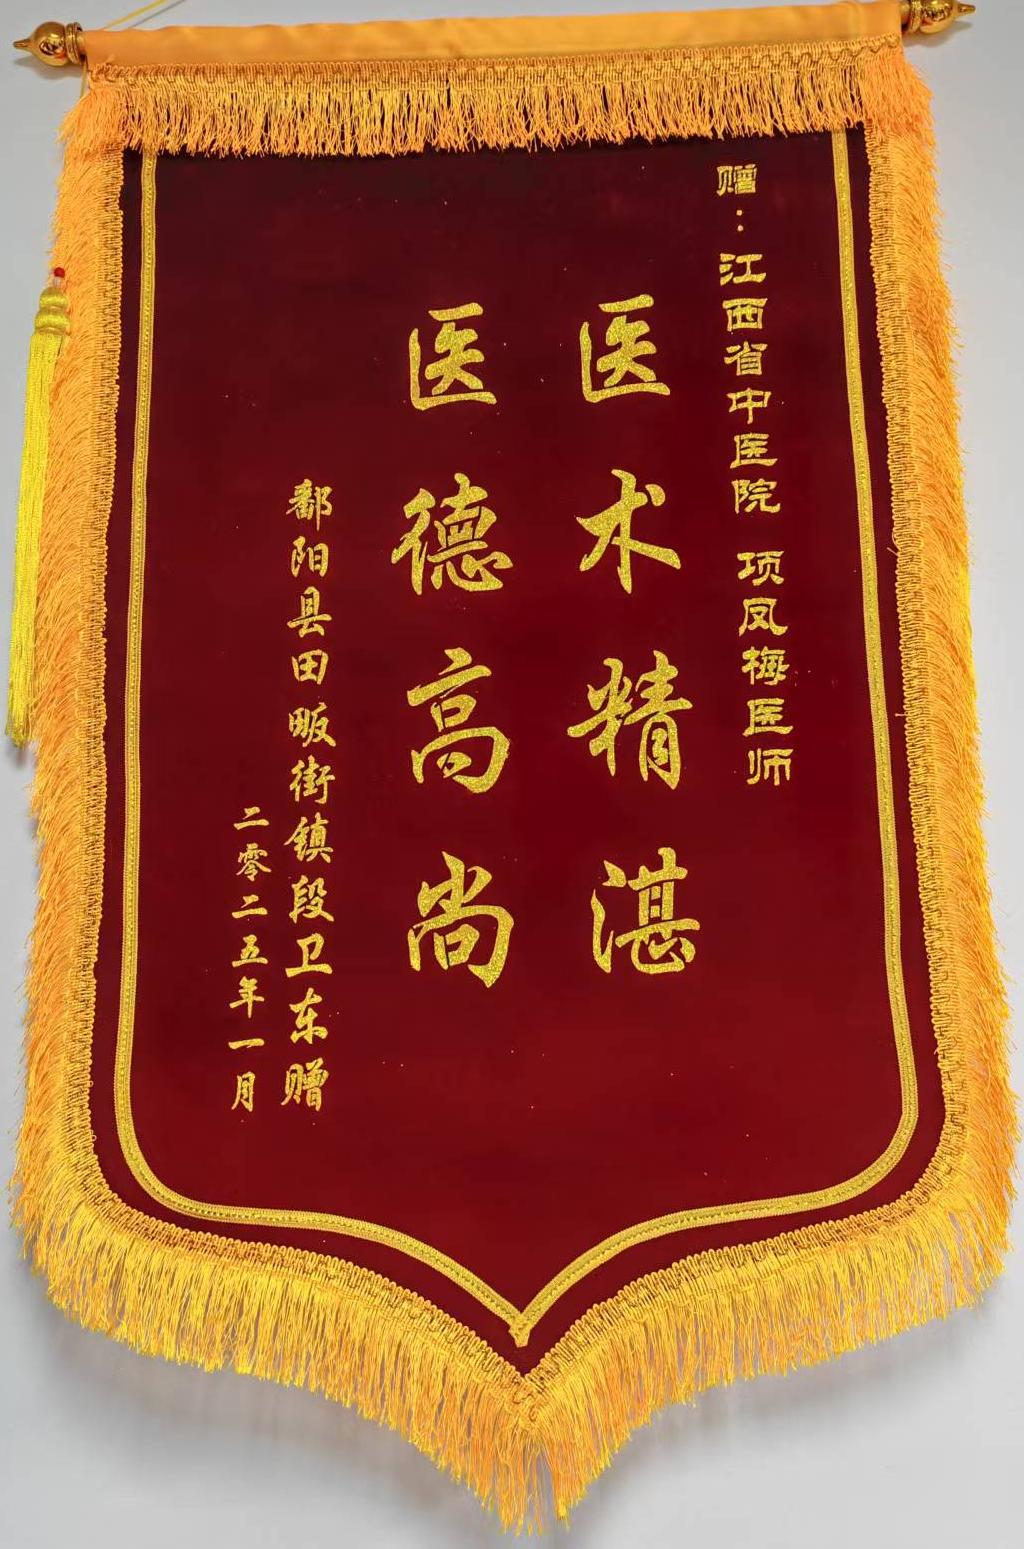 赠：江西省中医院 项凤梅医师
医术精湛
医德高尚
鄱阳县田畈街镇段卫东赠
二零二五年一月